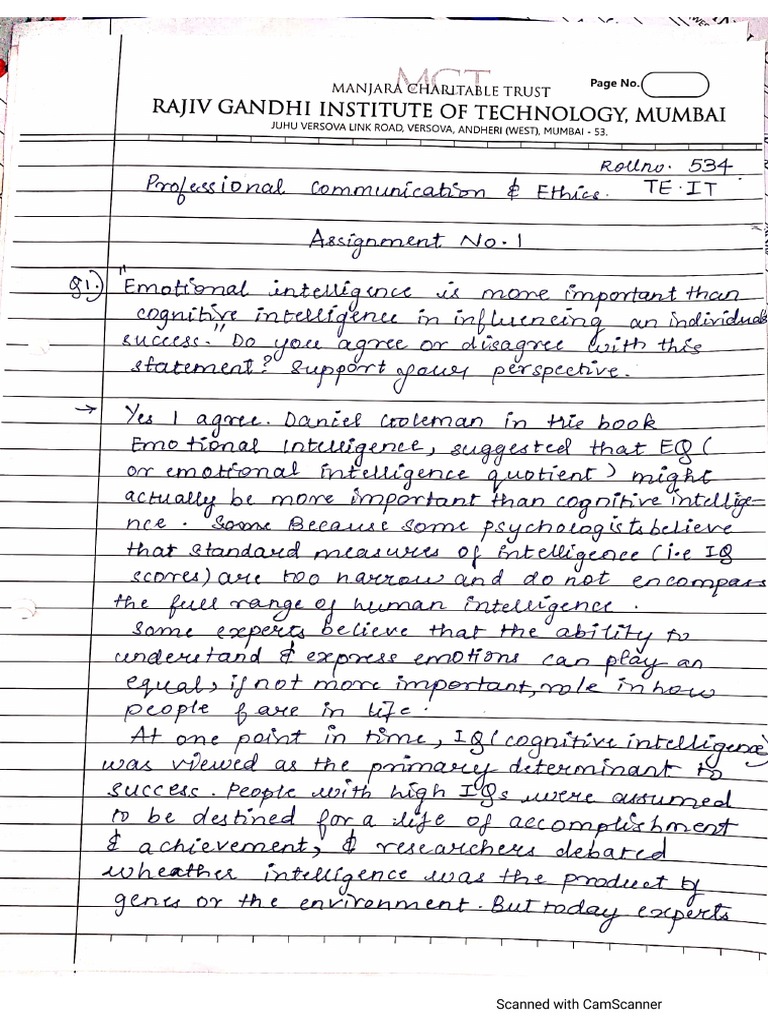 MCT
MANJARA CHARITABLE TRUST
Page No.
RAJIV GANDHI INSTITUTE OF TECHNOLOGY, MUMBAI
JUHU VERSOVA LINK ROAD, VERSOVA, ANDHERI (WEST), MUMBAI - 53.
Rollno. 534
Professional Communication & Ethics. TE.IT
Assignment No.1
Q1.) "Emotional intelligence is more important than
cognitive intelligence in influencing an individuals
success." Do you agree or disagree with this
statement? Support your perspective.
→ Yes I agree. Daniel Gooleman in the book
Emotional Intelligence, suggested that EQ (
or emotional intelligence quotient) might
actually be more important than cognitive intellige-
nce. Some Because some psychologists believe
that standard measures of intelligence (i.e IQ
scores) are too narrow and do not encompass
the full range of human intelligence.
Some experts believe that the ability to
understand & express emotions can play an
equal, if not more important, role in how
people fare in life.
At one point in time, IQ (cognitive intelligence)
was viewed as the primary determinant to
success. People with high IQs were assumed
to be destined for a life of accomplishment
& achievement, & researchers debated
wheather intelligence was the product of
genes or the environment. But today experts
Scanned with CamScanner